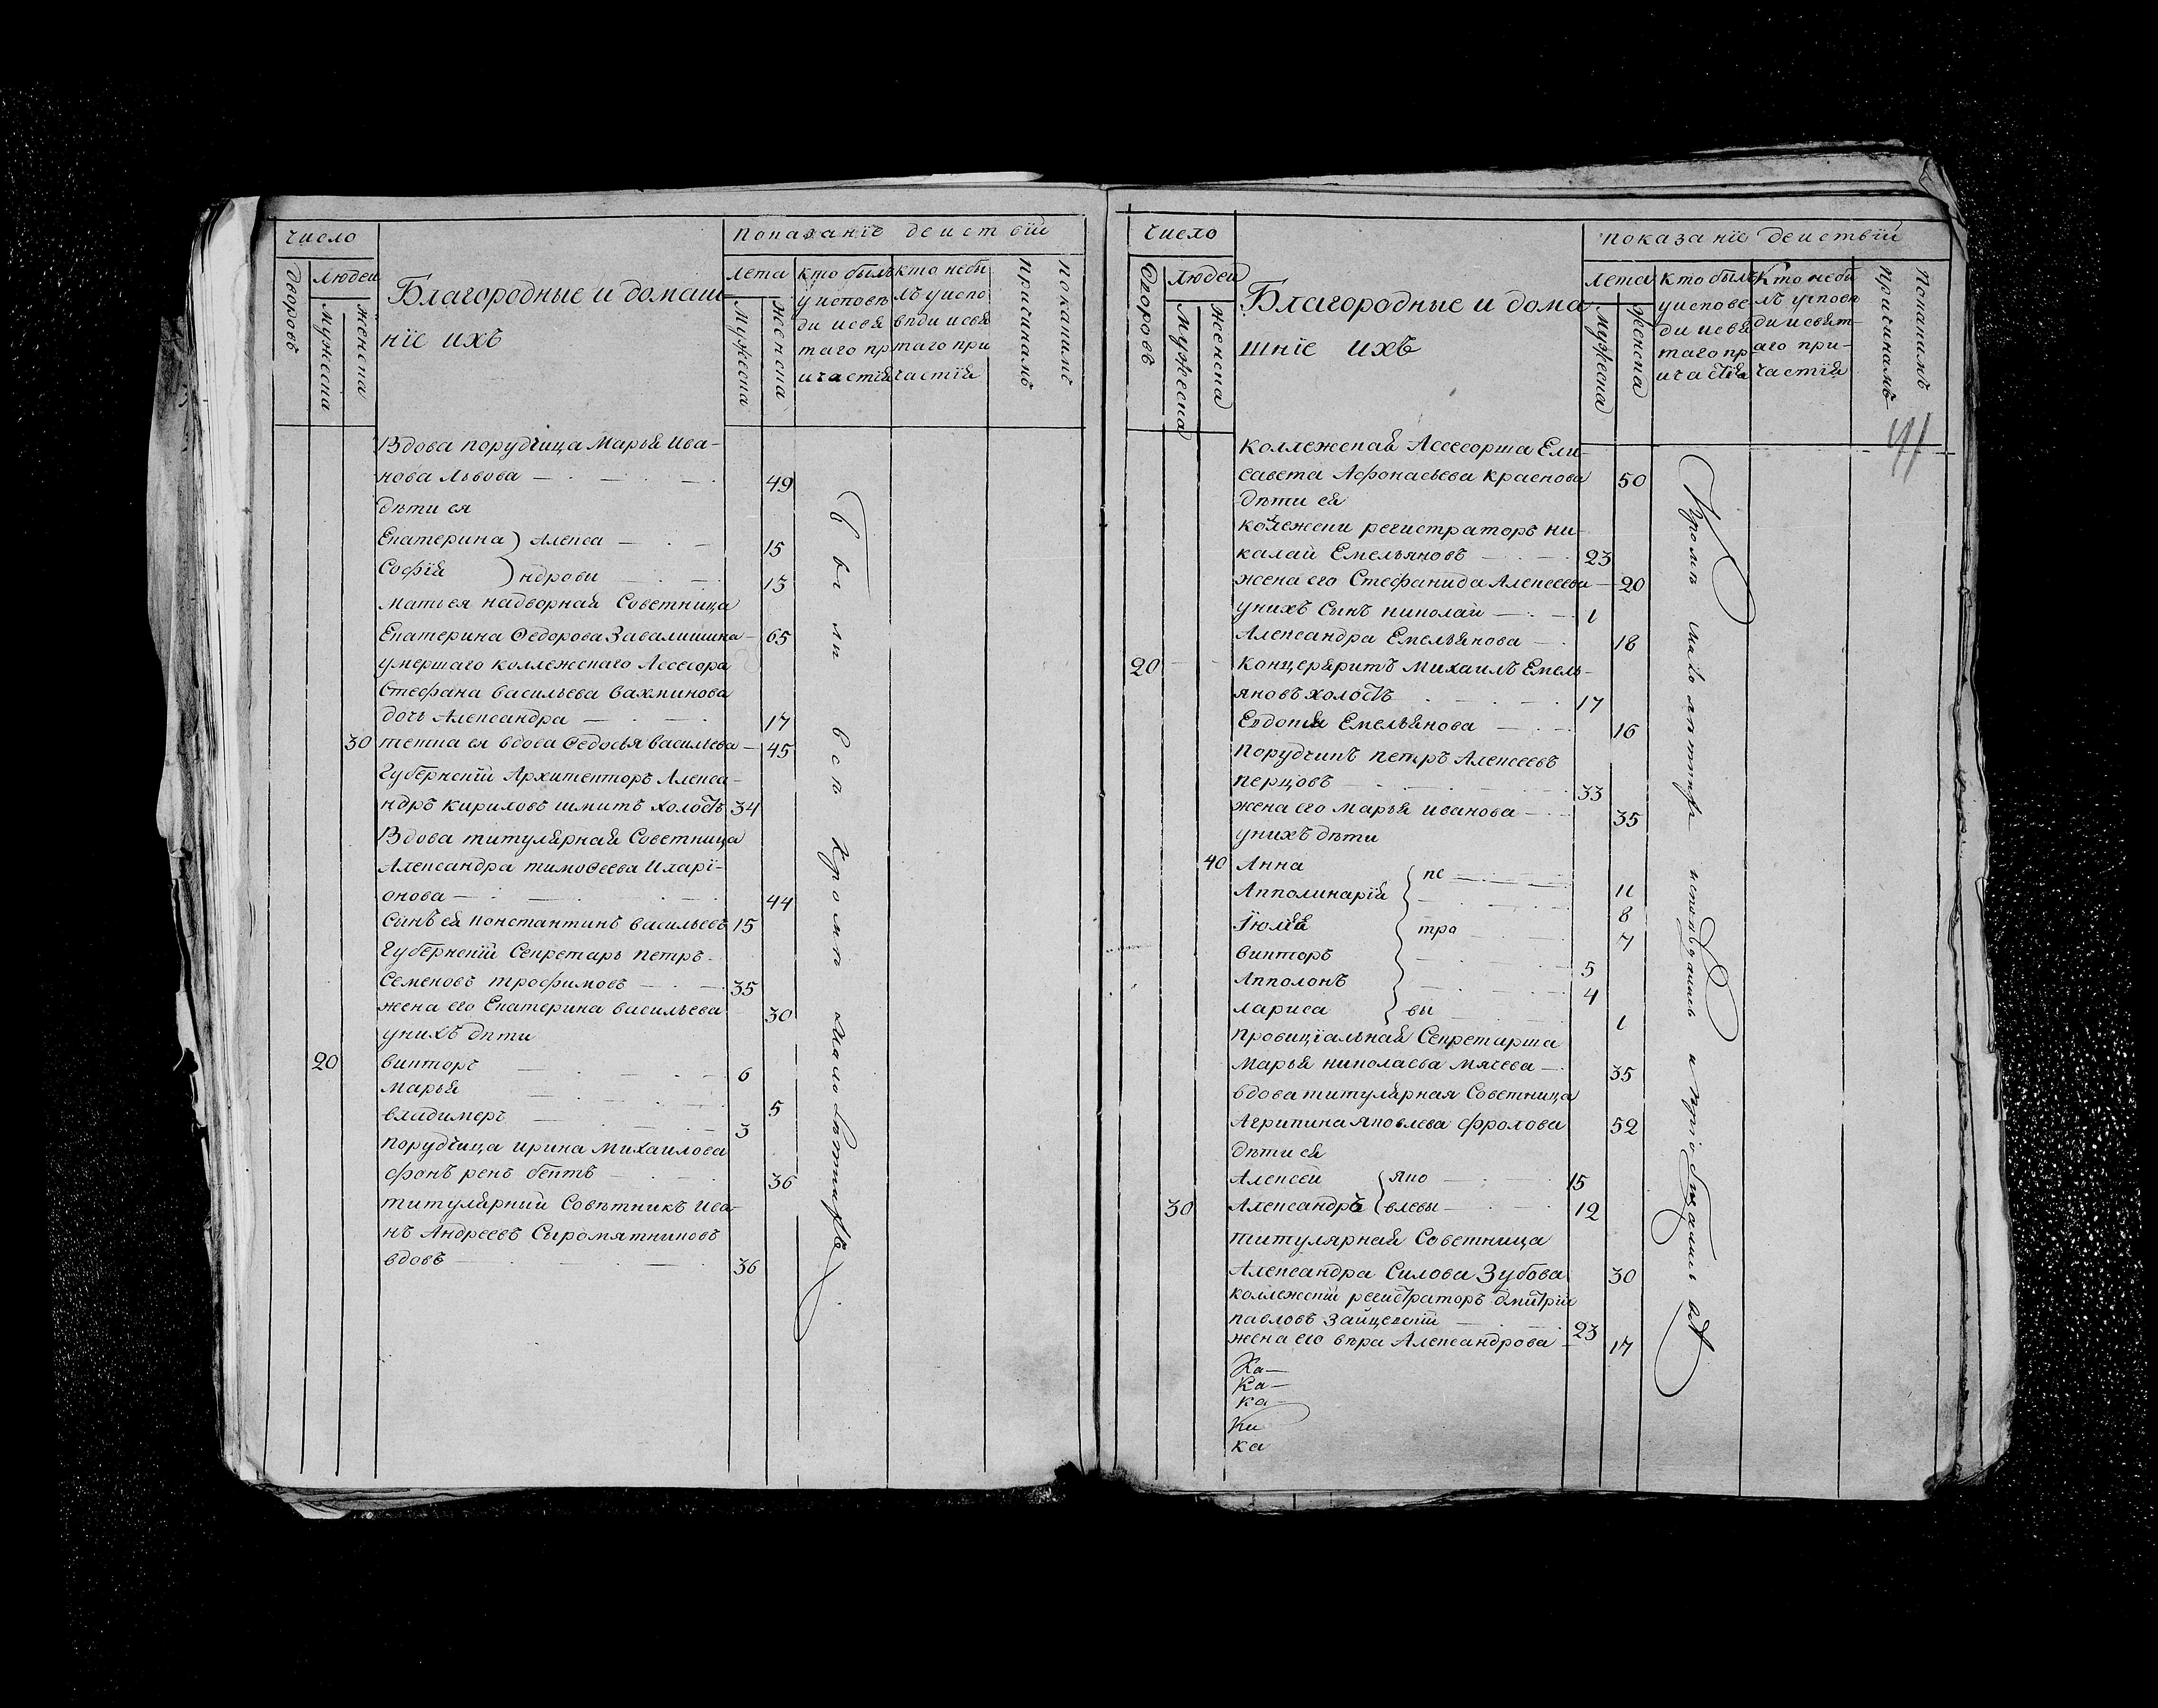 число
Показанїе деиствїй
дворовъ
людей
мужеска
женска
Благородные и домаш
нїе ихъ
лета
мужеска
женска
кто былъ
у исповѣ
ди и свя
таго пр
ичастїя
кто небы
лъ у испо
вѣди и свя
таго при
частїя
по каким
причинамъ
Вдова порудчица Марья Ива-
нова Львова 49
дѣти ея
Екатерина Алекса 15
Софїя ндровы 13
мать ея надворная Советница
Екатерина Ѳедорова Завалишина 65
умершаго коллежскаго Ассесора
Стефана васильева вахминова
дочь Александра 17
30 тетка ея вдова Ѳедосья васильева 45
Губернскїй Архитекторъ Алекса-
ндръ кириловъ шмитъ холостъ 34
Вдова титулярная Советница
Александра тимоѳеева Иларї-
онова 44
сынъ ея константинъ васильевъ 15
Губернскїй Секретарь петръ
Семеновъ трофимовъ 35
жена его Екатерина васильева 30
унихъ дѣти
20 викторъ 6
Марья 5
владимеръ 3
порудчица ирина Михаилова
фонъ ренъ 36
титулярный Совѣтникъ Ива-
нъ Андреевъ Сыромятниковъ
вдовъ 36
были все кромѣ
число
показанїе деиствїй
дворовъ
людей
мужеска
женска
Благородные и дома
шнїе ихъ
лета
мужеска
женска
кто былъ
у испове
ди и свя
таго пр
ичастїя
Кто небы
лъ у исповѣ
ди и свят-
аго при-
частїя
По какимъ
причинамъ
41
коллежская Ассесорша Ели-
савета Афонасьева краснова 50
дѣти ея
колежски регистраторъ ни-
калай Емельяновъ 23
жена его Стефанида Алексеева 20
унихъ Сынъ николай 1
Александра Емельянова 18
20 концеряритъ Михаилъ Емель-
яновъ холостъ 17
Евдокия Емельянова 16
порудчикъ петръ Алексеевъ
перцовъ 33
жена его марья иванова 35
унихъ дѣти
40 Анна пе 11
Апполинарїя 8
Їюлїя тро 7
викторъ 5
Апполонъ 4
лариса вы 1
провицїальная Секретарша
Марья николаева Мячева 35
вдова титулярная Советница
Агрипина яковлева фролова 52
дѣти ея
Алексей яко 15
30 Александръ влевы 12
титулярная Советница
Александра Силова Зубова 30
коллежскїй регистраторъ дмитрїй
павловъ зайцевскїй 23
жена его вѣра Александрова 17
Ка-
Ка-
ка
Ки
ка
Кромѣ